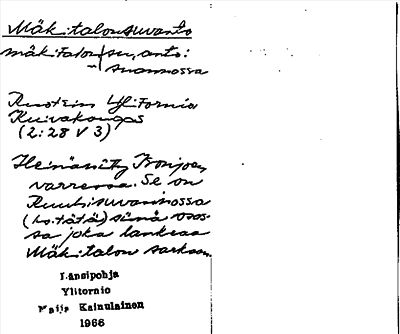 Mäkitalonsuvanto
mäkitalon|su, anto:
~ suannossa
Ruotsin Yli Tornio
Kuivakangas
(2:28 V 3)
Heinäniitty
varressa. Se on
Ruuhisuvannossa
(ks. tätä) siinä osas-
sa joka lankeaa
Mäkitalon sarkaan.
Länsipohja
Ylitornio
Maija Kainulainen
1966